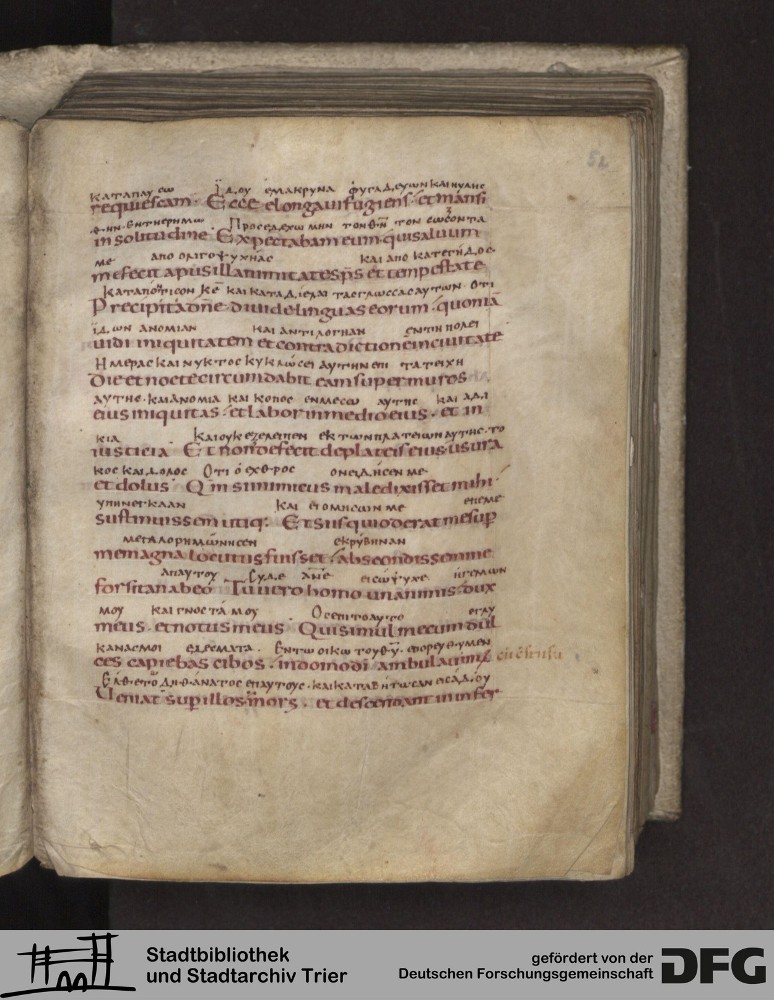 52
ΚΑΤΑΠΑΥϹω ΪΔΟΥ ΕΜΑΚΡΥΝΑ ΦΥΓΑΔΕΥωΝ ΚΑΙ ΗΥΛΙϹ
requiescam · Ecce elongaui fugiens · et mansi
ΘΗΝ · ΕΝ ΤΗ ΕΡΗΜω ΠΡΟϹΕΔΕΧωΜΗΝ ΤΟΝ ΘΝ ΤΟΝ ϹωϹΟΝΤΑ
in solitudine · Expectabam eum qui saluum
ΜΕ ΑΠΟ ΟΛΙΓΟΨΥΧΗΑϹ ΚΑΙ ΑΠΟ ΚΑΤΕΓΗΔΟϹ
me fecit a pusillanimitate sps et tempestate
ΚΑΤΑΠΟΤΙϹΟΝ ΚΕ ΚΑΙ ΚΑΤΑΔΙΕΛΑΙ ΤΑϹ ΓΛωϹϹΑϹ ΑΥΤωΝ · ΟΤΙ
Precipita dne · diuide linguas eorum · quoniā
ΪΔωΝ ΑΝΟΜΙΑΝ ΚΑΙ ΑΝΤΙΛΟΓΗΑΝ ΕΝ ΤΗ ΠΟΛΕΙ
uidi iniquitatem et contradictionem in ciuitate
ΗΜΕΡΑϹ ΚΑΙ ΝΥΚΤΟϹ ΚΥΚΛωϹΕΙ ΑΥΤΗΝ ΕΠΙ ΤΑ ΤΕΙΧΗ
Die et nocte circumdabit eam super muros
ΑΥΤΗϹ · ΚΑΙ ΑΝΟΜΙΑ ΚΑΙ ΚΟΠΟϹ ΕΝ ΜΕϹω ΑΥΤΗϹ ΚΑΙ ΑΔΙ
eius iniquitas · et labor in medio eius · et in
ΚΙΑ ΚΑΙ ΟΥΚ ΕΞΕΛΕΙΠΕΝ ΕΚ ΤωΝ ΠΛΑΤΕΙωΝ ΑΥΤΗϹ · ΤΟ
iusticia · Et non defecit de plateis eius usura
ΚΟϹ ΚΑΙ ΔΟΛΟϹ ΟΤΙ Ο ΕΧΘΡΟϹ ΟΝΕΙΔΗϹΕΝ ΜΕ ·
et dolus · Qm si inimicus maledixisset mihi ·
ΥΠΙΝΕΓΚΑ ΑΝ ΚΑΙ ΕΙ Ο ΜΙϹωΝ ΜΕ ΕΠΕΜΕ
sustinuissem utiq: · Et si is qui oderat me sup
ΜΕΓΑΛΟΡΙΜωΝΗϹΕΝ ΕΚΡΥΒΗΝ ΑΝ
me magna locutus fuisset · abscondissem me
ΑΠ ΑΥΤΟΥ ϹΥ ΔΕ ΑΝΕ ΕΙϹωΨΥΧΕ ΗΓΕΜωΝ
forsitan ab eo · Tu uero homo unanimis · dux
ΜΟΥ ΚΑΙ ΓΝΟϹΤΑ ΜΟΥ ΟϹ ΕΠΙ ΤΟ ΑΥΤΟ ΕΓΛΥ
meus · et notus meus · Qui simul mecum dul
ΚΑΝΑϹ ΜΟΙ ΕΔΕϹΜΑΤΑ · ΕΝ Τω ΟΙΚω ΤΟΥ ΘΥ · ΕΠΟΡΕΥΘΥΜΕΝ
ces capiebas cibos · in domo di ambulauimꝰ
ΕΛΘΕΤΟ ΔΗ ΘΑΝΑΤΟϹ ΕΠ ΑΥΤΟΥϹ · ΚΑΙ ΚΑΤΑΒΗΤωϹΑΝ ΕΙϹ ΑΔΟΥ
Ueniat sup illos mors · et descendant in infer
Stadtbibliothek
und Stadtarchiv Trier
gefördert von der
Deutschen Forschungsgemeinschaft
DFG